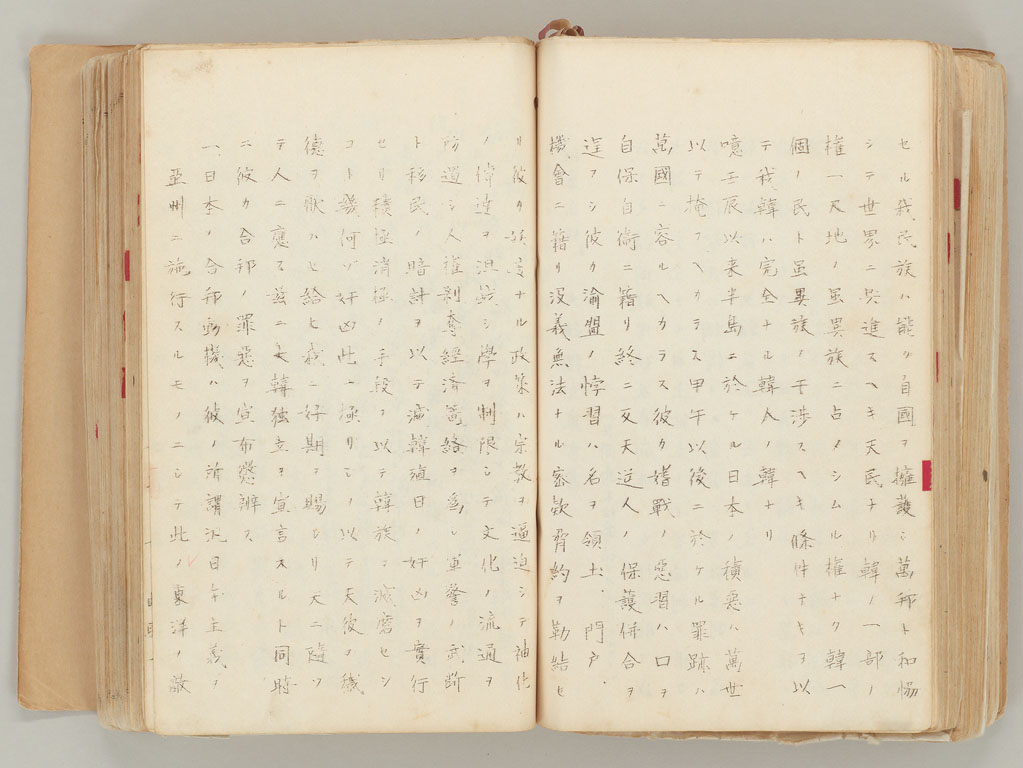 セル我民族ハ能ク自國ヲ擁護シ萬邦ト和協
シテ世界ニ共進スヘキ天民ナリ韓ノ一部ノ
権一尺地ノ虽異族ニ占メシムル権ナク韓一
個ノ民ト虽異族ノ干渉スヘキ條件ナキヲ以
テ我韓ハ完全ナル韓人ノ韓ナリ
噫壬辰以来半島ニ於ケル日本ノ積悪ハ萬世
以テ掩フヘカラス甲午以後ニ於ケル罪跡ハ
萬國ニ容ルヘカラス彼カ嗜戰ノ惡習ハ口ヲ
自保自衛ニ籍リ終ニ反天逆人ノ保護併合ヲ
逞フシ彼カ渝盟ノ悖習ハ名ヲ領土、門戸、
機會ニ籍リ没義無法ナル密欵脅約ヲ勒結セ
リ彼ノ ナル政策ハ宗教ヲ逼迫シテ神化
ノ傳達ヲ沮 シ學 ヲ制限シテ文化ノ流通ヲ
防遏シ人権剥奪経済籠絡ヲ為シ軍警ノ武断
ト移民ノ暗計ヲ以テ滅韓殖日ノ奸凶ヲ實行
セリ積極消極ノ手段ヲ以テ韓族ヲ滅磨セシ
コト幾何ゾ奸凶此ニ極リシヲ以テ天彼ノ穢
德ヲ歇ハセ給ヒ我ニ好期ヲ賜レリ天ニ随ヒ
テ人ニ應ス玆ニ大韓独立ヲ宣言スルト同時
ニ彼カ合邦ノ罪惡ヲ宣布懲辦ス
一、日本ノ合邦動機ハ彼ノ所謂汎日本主義ヲ
亞州ニ施行スルモノニシテ此ノ東洋ノ敵